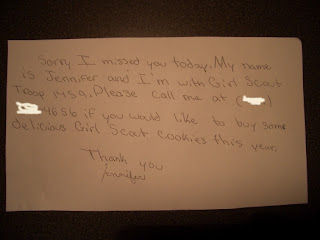 Sorry I missed you today. My name
is Jennifer and I'm with Girl Scout
Troop 1459. Please call me at (
) 4656 if you would like to buy some
delicious Girl Scout cookies this year.
Thank you
Jennifer